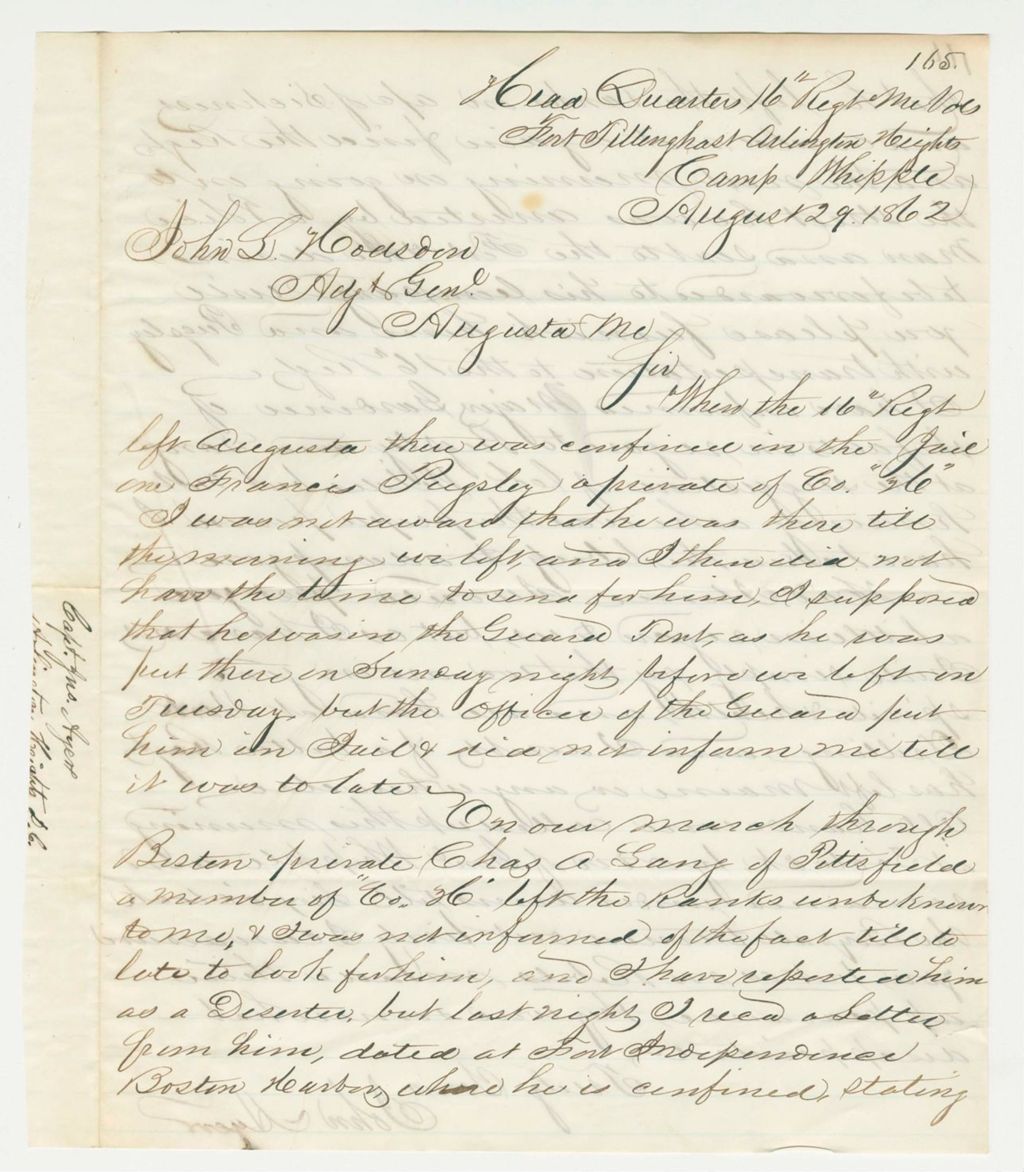 165.
Head Quarters 16" Regt Me Vols
Fort Tillenghast Arlington Heights
Camp Whipple
August 29. 1862
John L. Hodsdon
Adjt Genl
Augusta Me
Sir
When the 16" Regt
left Augusta there was confined in the Jail
one Francis Pugsley a private of Co. "H"
I was not award that he was there till
the morning we left, and I then did not
have the time to send for him, I supposed
that he was in the Guard Tent, as he was
put there on Sunday night, before we left on
Tuesday, but the Officer of the Guard put
him in Jail & did not inform me till
it was to late
On our march through
Boston private Chas A Gang of Pittsfield
a member of "Co. H" left the Ranks unbeknown
to me, & I was not informed of the fact till to
late to look for him, and I have reported him
as a Deserter, but last night I recd a Letter
from him, dated at Fort Independence
Boston Harbor, where he is confined, stating
Capt. Jno. Ayer
Arlington Heights D.C.